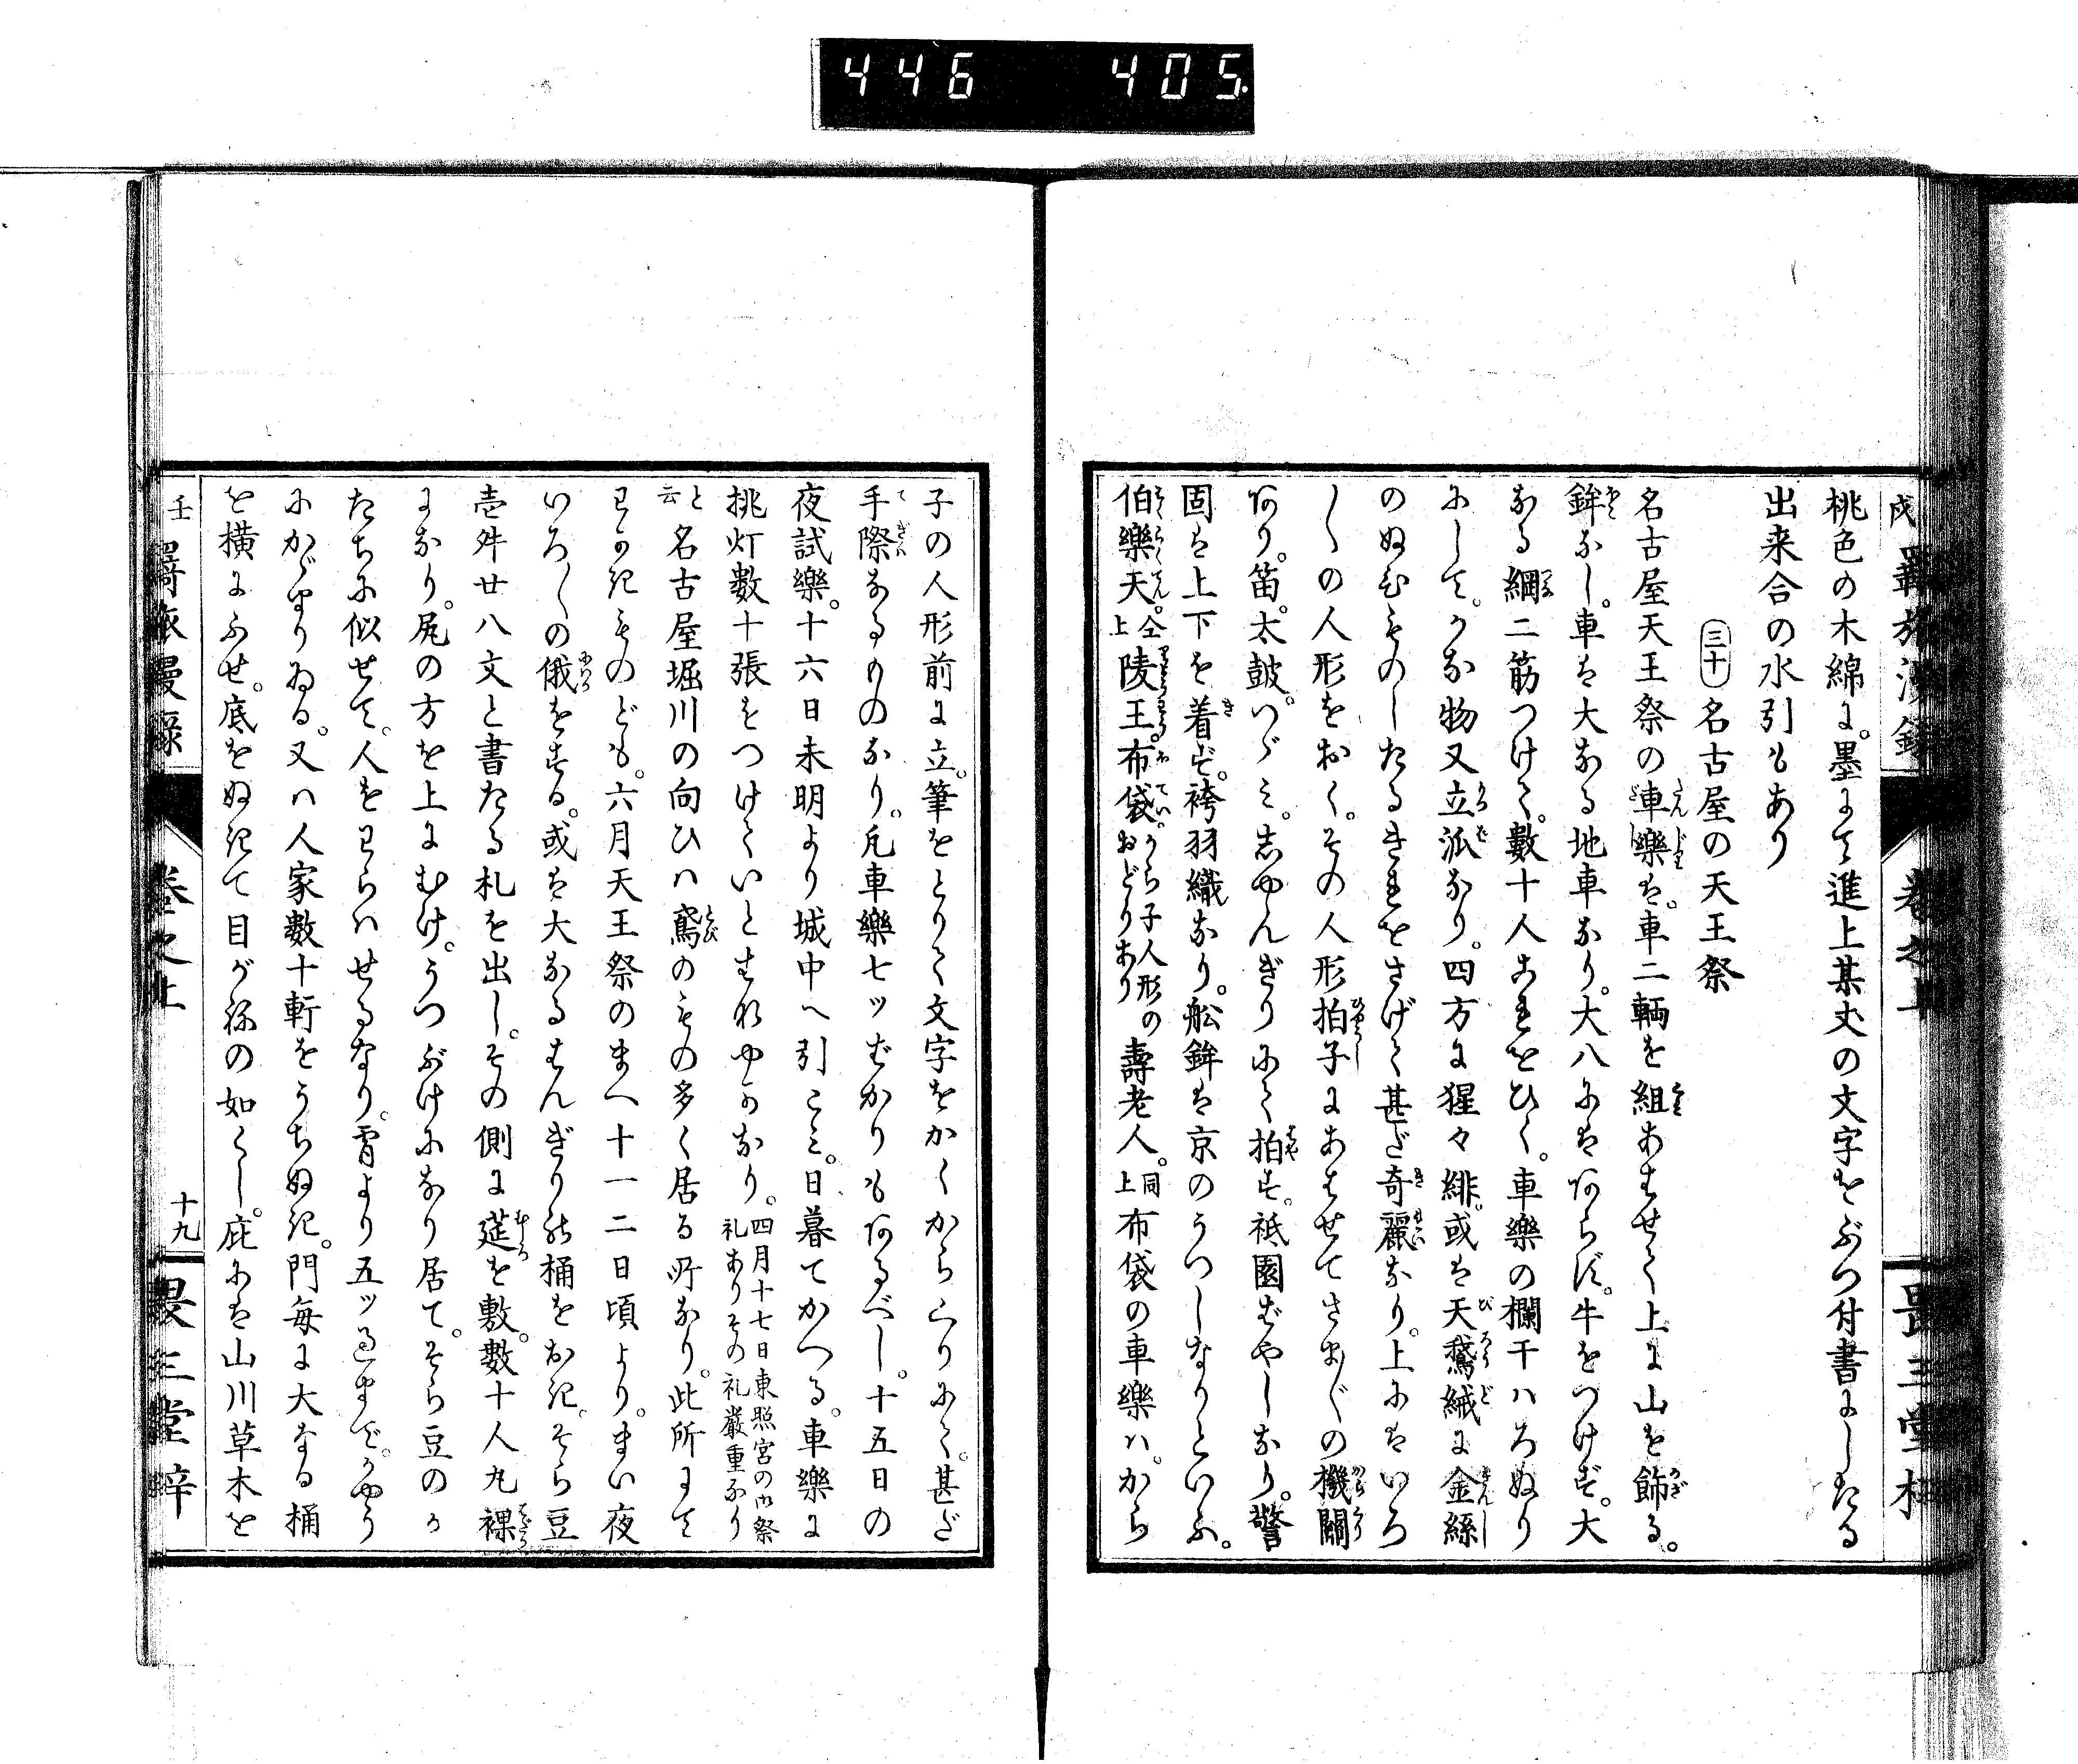 446 405
羈旅漫録
卷之上
畏三堂梓
桃色の木綿に。墨にて進上某丈の文字をぶつ付書にしたる
出来合の水引もあり
三十 名古屋の天王祭
名古屋天王祭の車樂は。車二輌を組あはせて上に山を飾る。
鉾なし。車は大なる地車なり。大八にはあらず。牛をつけず。大
なる綱二筋つけて。數十人これをひく。車樂の欄干ハろぬり
にして。かな物又立派なり。四方に猩々緋。或は天鵞絨に金絲
のぬひものしたるきれをさげて甚だ奇麗なり。上にはいろ
〳〵の人形をおく。その人形拍子にあはせてさま〴〵の機關
あり。笛。太鼓。つゞみ。志やんぎりにて拍す。祇園ばやしなり。警
固は上下を着ず。袴羽織なり。舩鉾は京のうつしなりといふ。
伯樂天。仝上陵王。布袋。から子人形のおどりあり壽老人。同上布袋の車樂ハ。から
子の人形前に立。筆をとりて文字をかくからくりにて。甚だ
手際なるものなり。凡車樂七ツばかりもあるべし。十五日の
夜試樂。十六日未明より城中へ引こみ。日暮てかへる。車樂に
挑灯數十張をつけていとはなやかなり。四月十七日東照宮の御祭礼ありその礼嚴重なり
と云名古屋堀川の向ひハ鳶のもの多く居る所なり。此所にて
わかきものども。六月天王祭のまへ十一二日頃より。まい夜
いろ〳〵の俄をする。或は大なるはんぎり桶をおき。そら豆
壱舛廿八文と書たる札を出し。その側に莚を敷。數十人丸裸
になり。尻の方を上にむけ。うつぶけになり居て。そら豆のか
たちに似せて。人をわらハせるなり。宵より五ツ過まで。かやう
にかざりゐる。又ハ人家數十軒をうちぬき。門毎に大なる桶
を横にふせ。底をぬきて目がねの如くし。庇には山川草木を
壬 羇旅漫錄
卷之上
十九
畏三堂梓